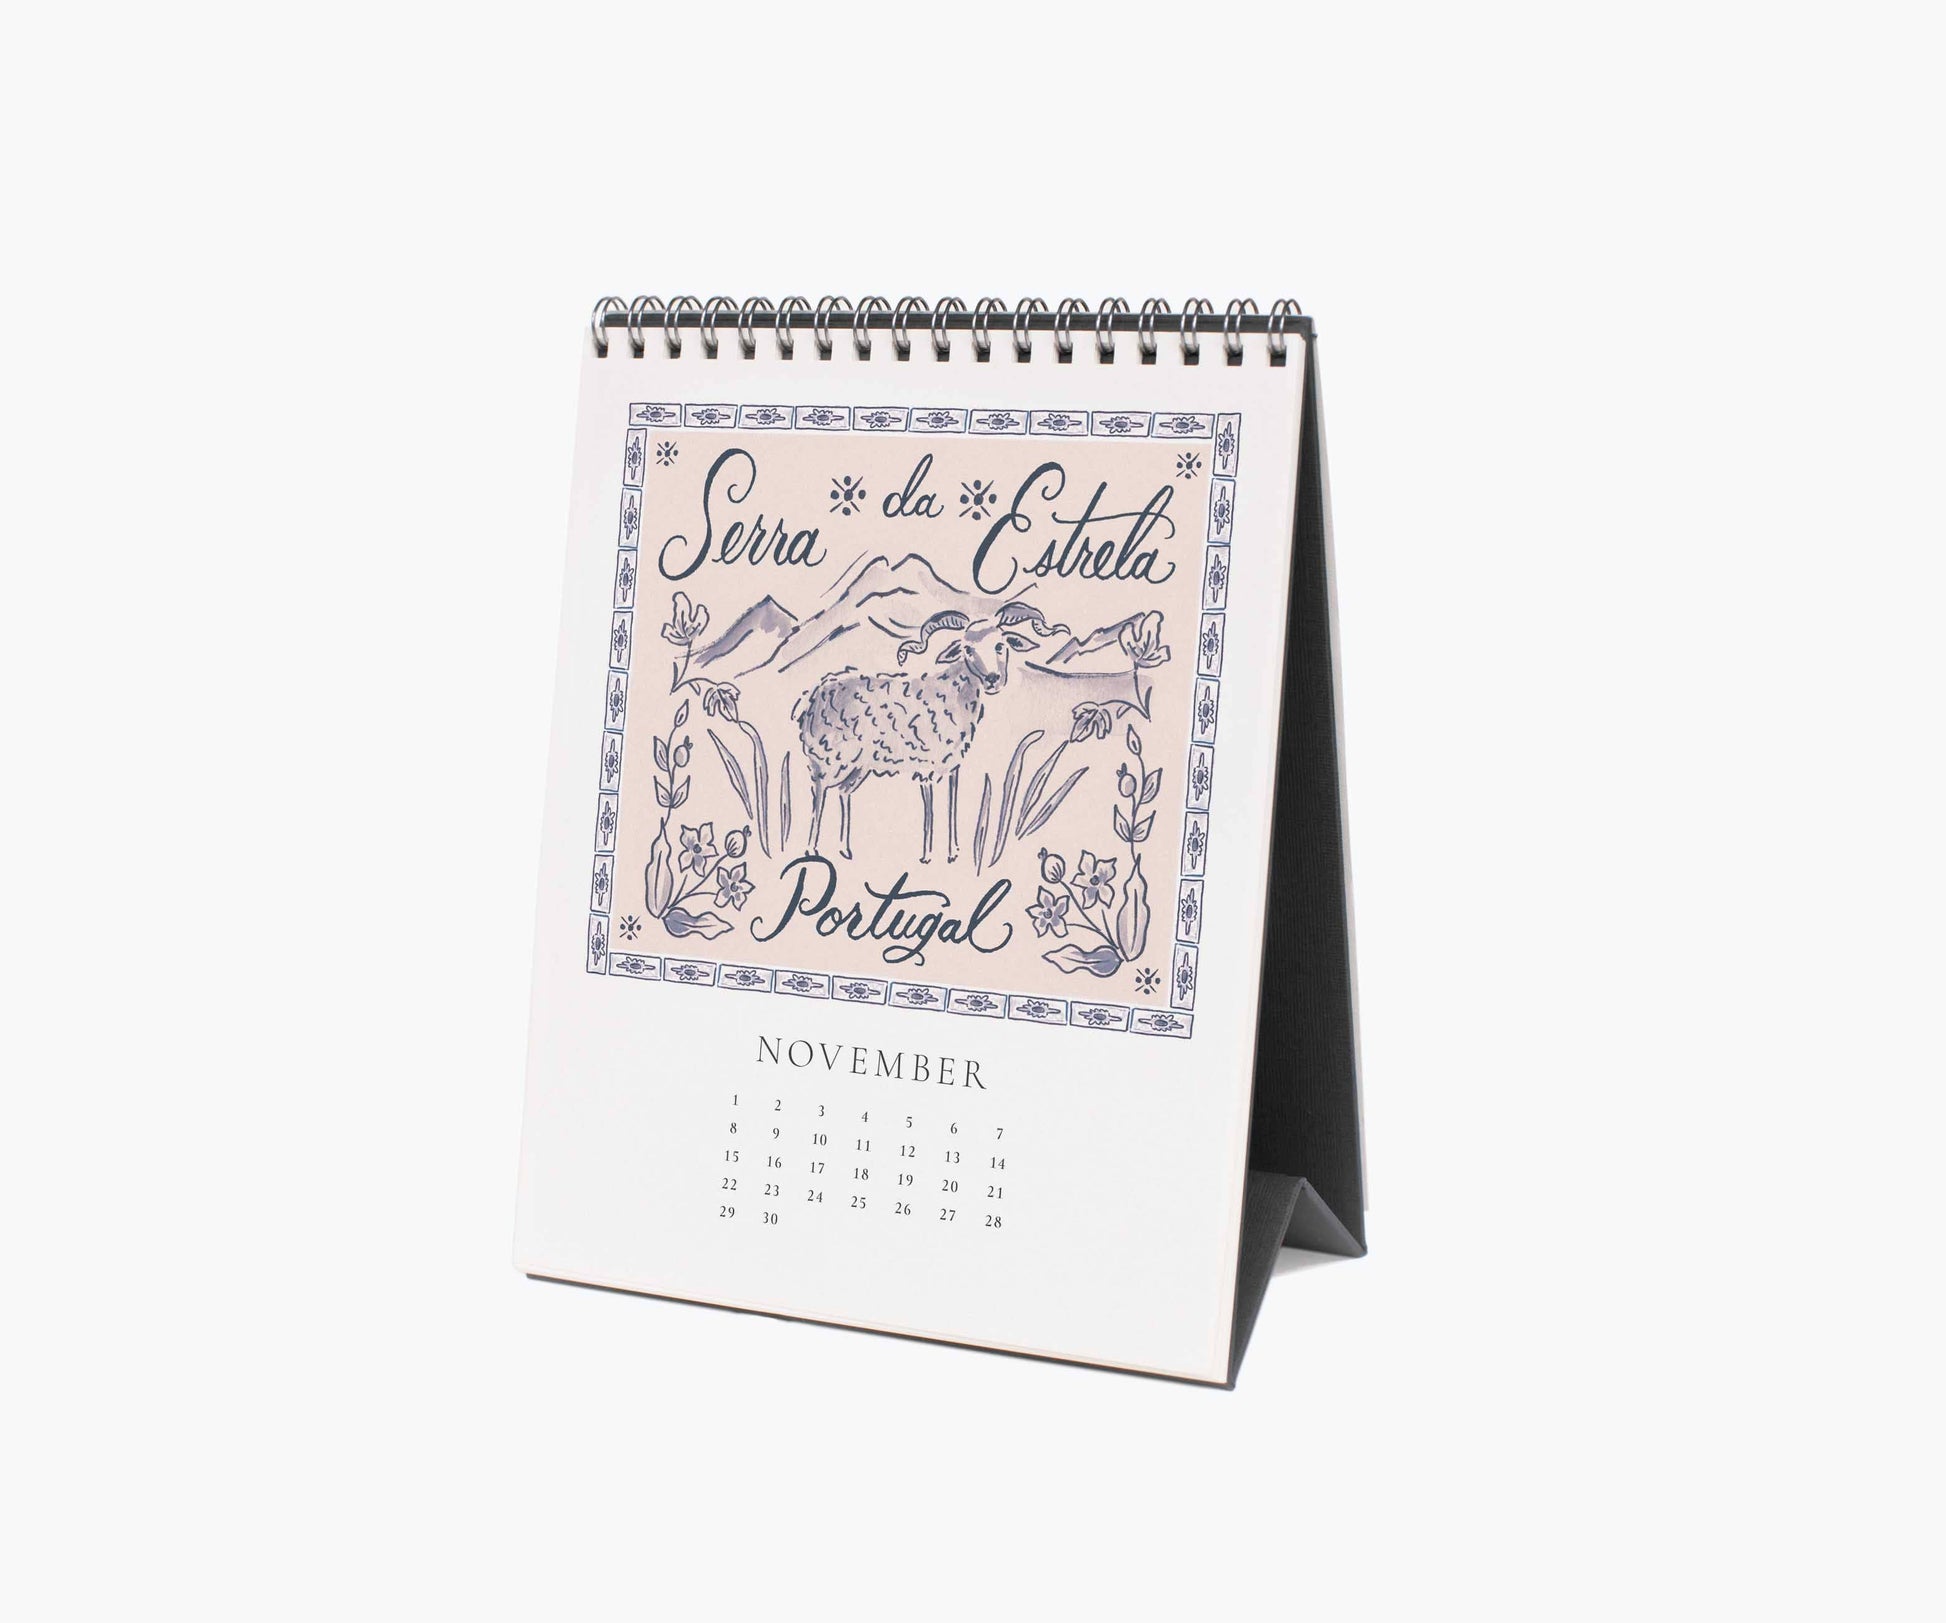 Serra da Estrela
Portugal
NOVEMBER
1 2 3 4 5 6 7
8 9 10 11 12 13 14
15 16 17 18 19 20 21
22 23 24 25 26 27 28
29 30